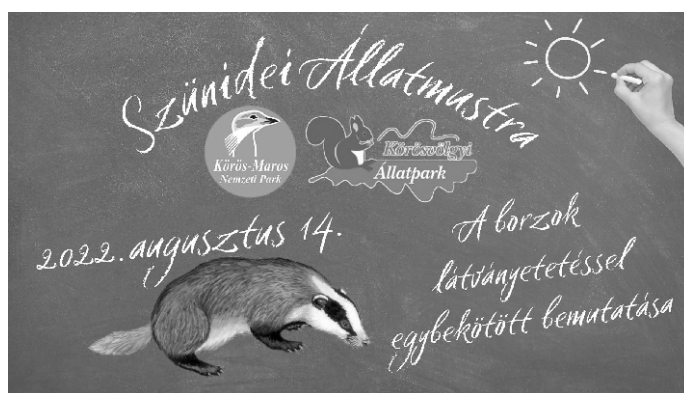 Szünidei Állatmustra
Körös-Maros
Nemzeti Park
Körösvölgyi
Állatpark
2022. augusztus 14.
A borzok
látványetetéssel
egybekötött bemutatása